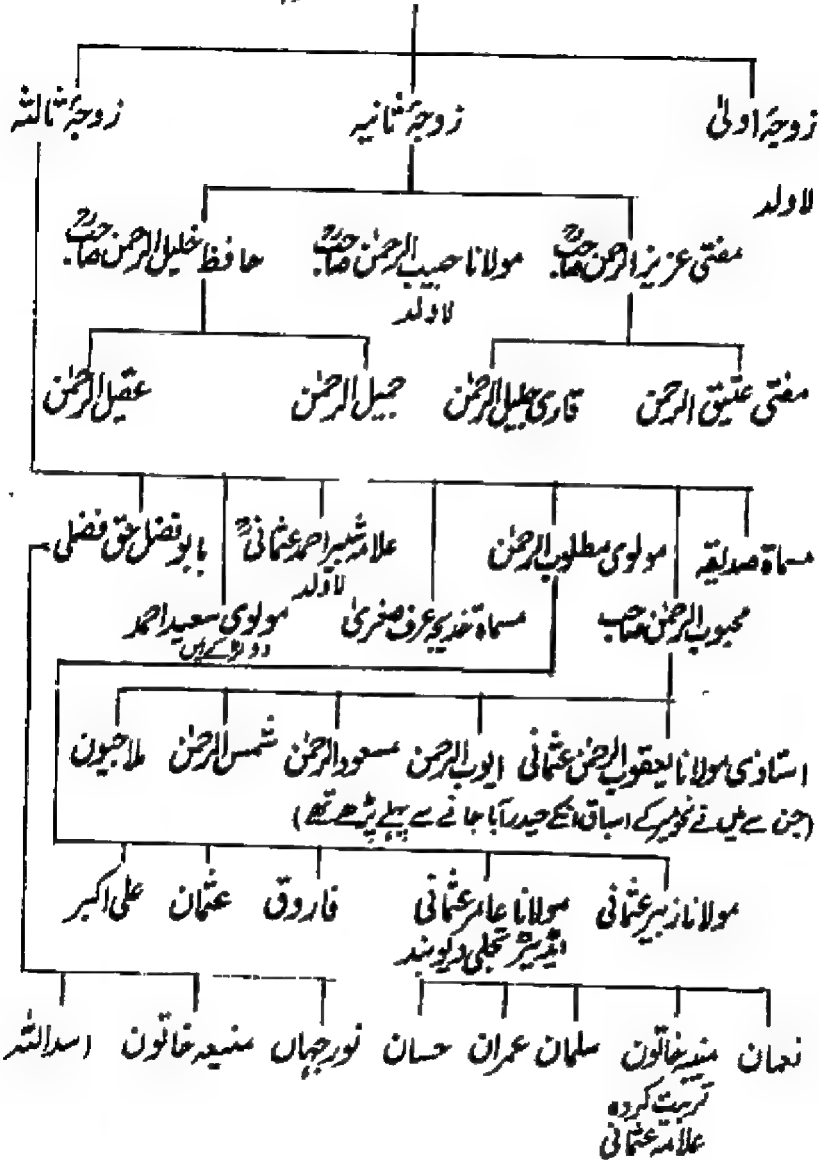 زوجۂ اولیٰ زوجۂ ثانیہ زوجۂ ثالثہ
لاولد
مفتی عزیز الرحمٰن صاحبؒ مولانا حبیب الرحمٰن صاحبؒ حافظ خلیل الرحمٰن صاحبؒ
لاولد
مفتی عتیق الرحمٰن قاری جلیل الرحمٰن جمیل الرحمٰن عقیل الرحمٰن
مسماۃ صدیقہ مولوی مطلوب الرحمٰن علامہ شبیر احمد عثمانیؒ بابو فضل حق فضلی
لاولد
محبوب الرحمٰن صاحب مسماۃ خدیجہ عرف صغریٰ مولوی سعید احمد
دو لڑکے ہیں
استاذی مولانا یعقوب الرحمٰن عثمانی ایوب الرحمٰن مسعود الرحمٰن شمس الرحمٰن ملا جیون
(جن سے میں نے نحو میر کے اسباق انکے حیدرآباد جانے سے پہلے پڑھے تھے)
مولانا زبیر عثمانی مولانا عامر عثمانی فاروق عثمان علی اکبر
ایڈیٹر تجلی دیوبند
نعمان منیبہ خاتون سلمان عمران حسان نور جہاں منیعہ خاتون اسد اللہ
تربیت کردہ
علامہ عثمانی